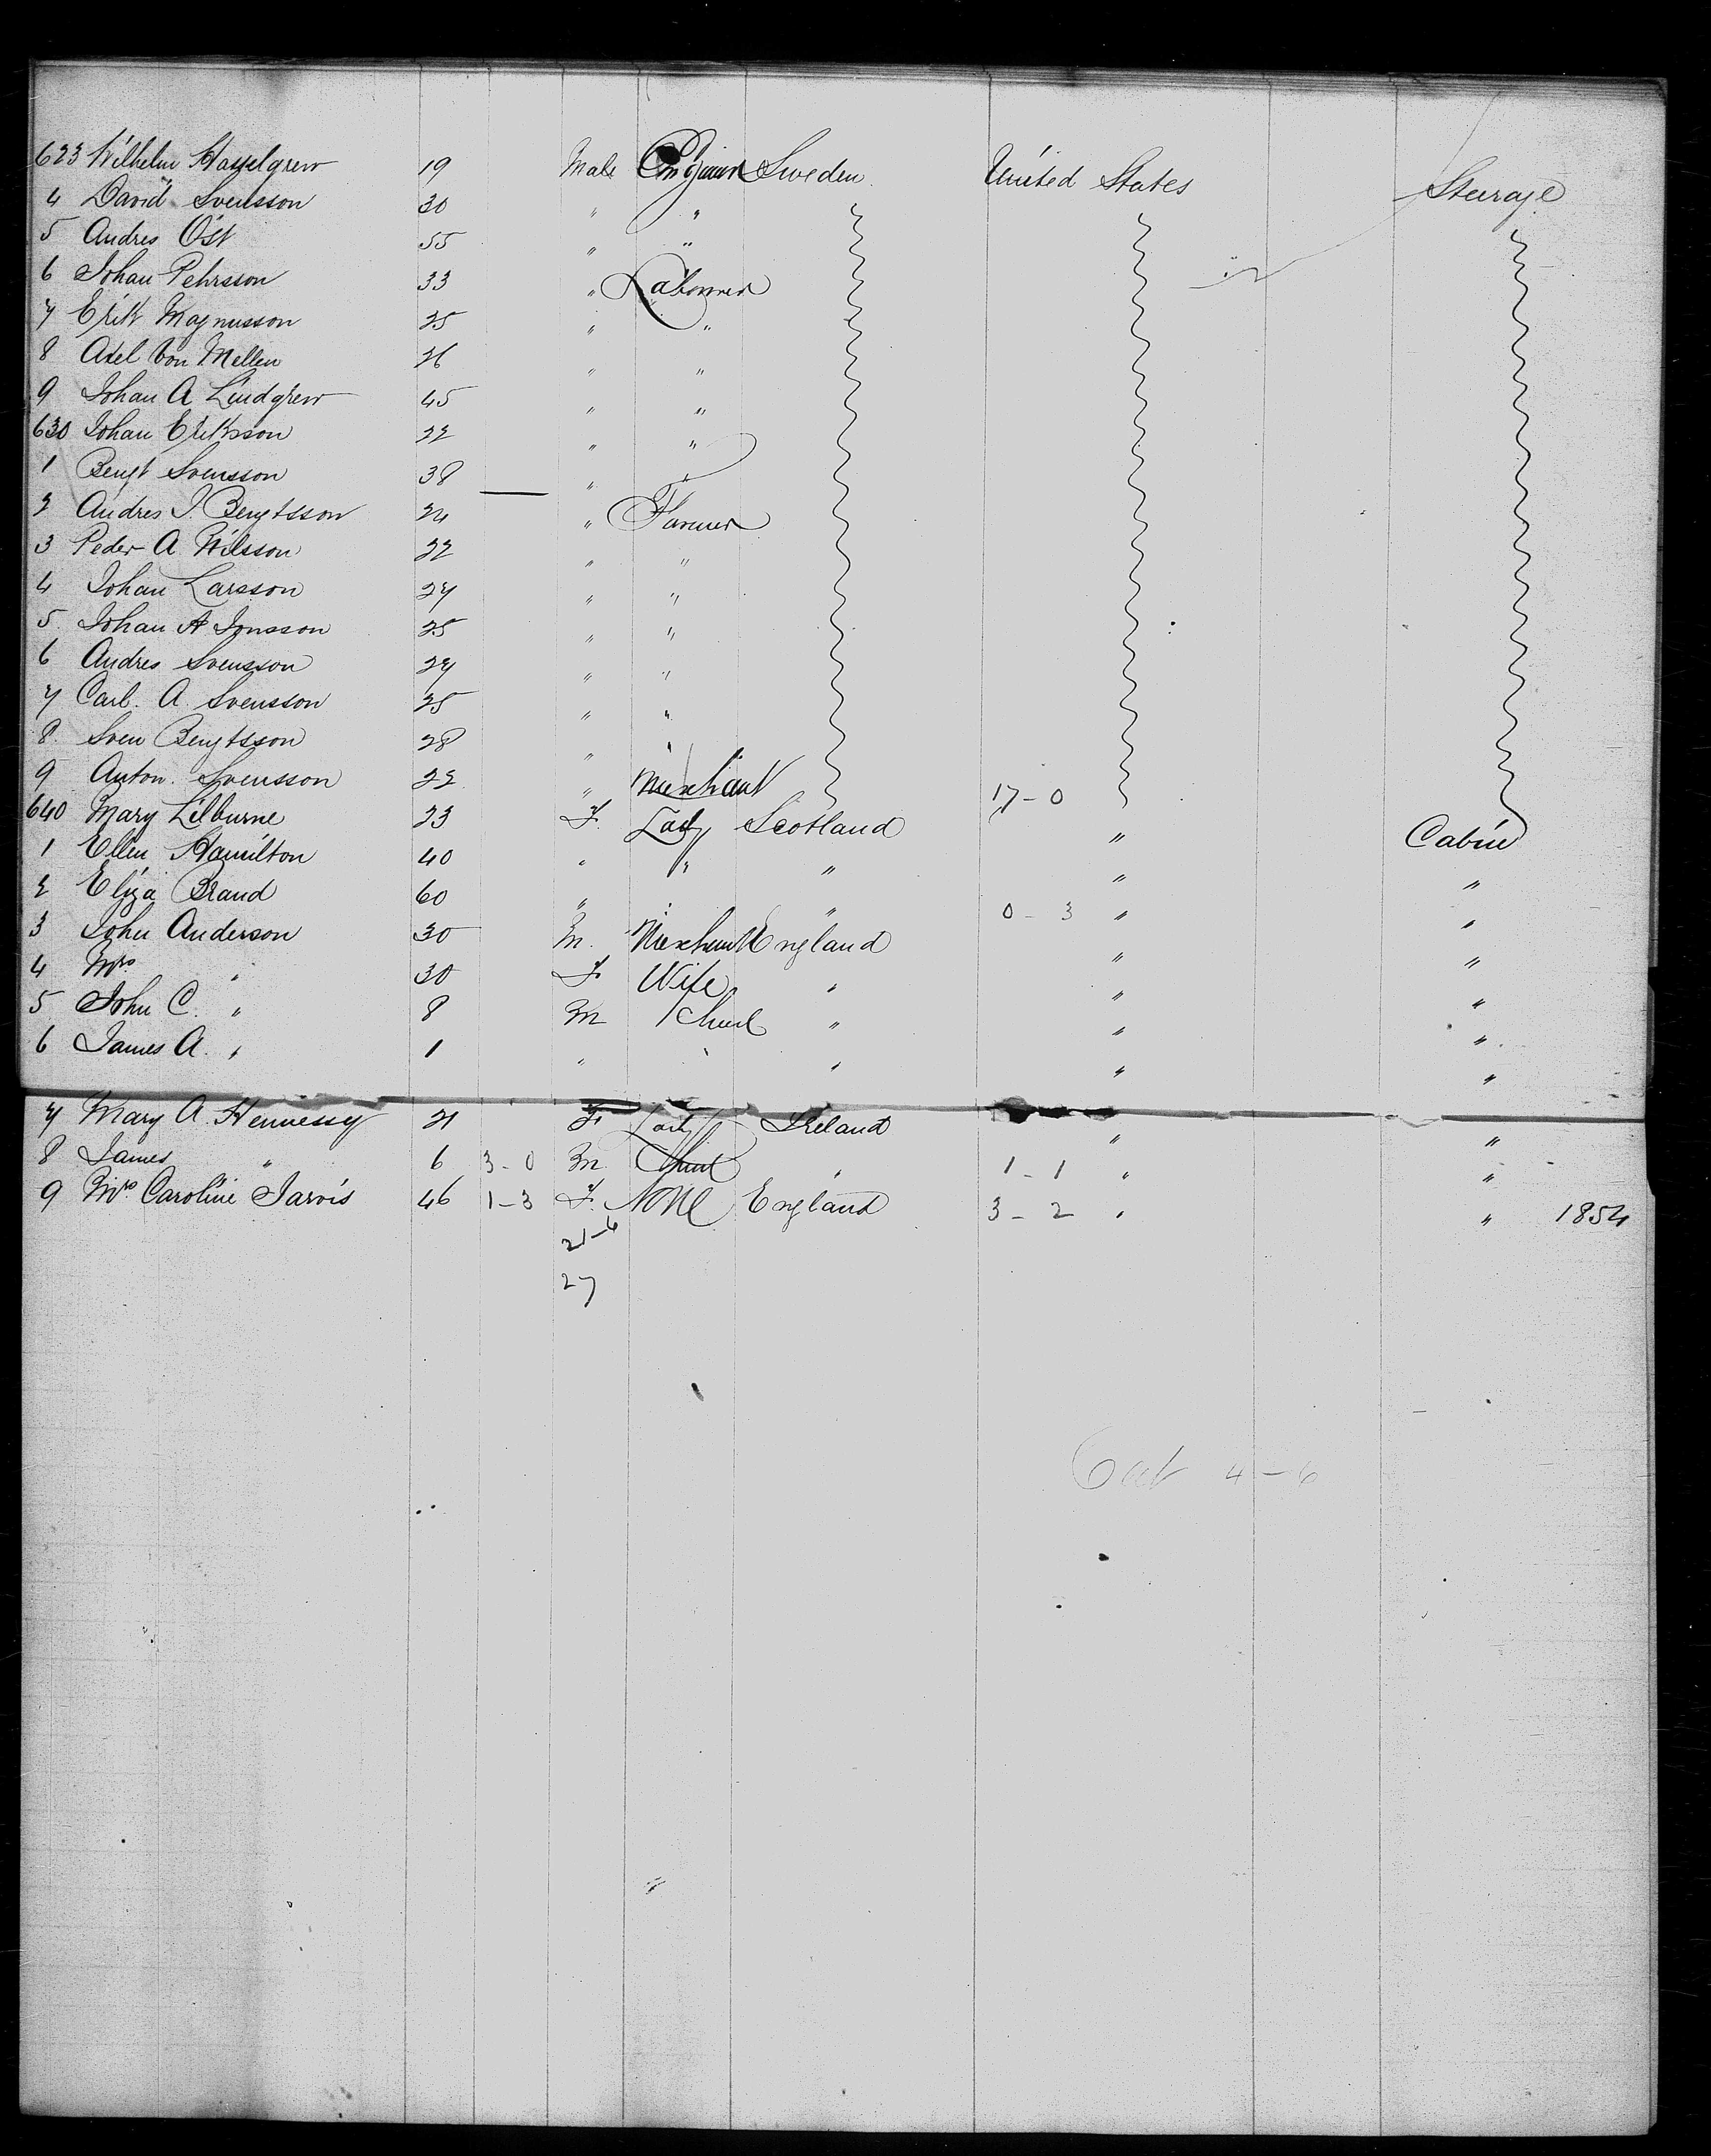 623 Wilhelm Hasselgren 19 Male Sweden United States Steerage
4 David Svensson 30 " "
5 Andres Öst 55 " "
6 Johan Pehrsson 33 " Labourer
7 Erik Magnusson 25 " "
8 Axel Von Mellen 26 " "
9 Johan A Lindgren 45 " "
630 Johan Eriksson 22 " "
1 Bengt Svensson 38 "
2 Andres J. Bengtsson 24 " Farmer
3 Peder A. Nilsson 22 " "
4 Johan Larsson 27 " "
5 Johan A Jonsson 25 " "
6 Andres Svensson 27 " "
7 Carl. A. Svensson 25 " "
8 Sven Bengtsson 28 " "
9 Anton. Svensson 22 " Merchant 17-0
640 Mary Lilburne 23 F. Lady Scotland " Cabin
1 Ellen Hamilton 40 " " " " "
2 Eliza Brand 60 " " " 0-3 " "
3 John Anderson 30 M. Merchant England " "
4 Mrs " 30 F Wife " " "
5 John C. " 8 M Child " " "
6 James A. " 1 " " " " "
7 Mary A. Hennessy 21 F. Lady Ireland " "
8 James " 6 3-0 M Child " 1-1 " "
9 Mrs Caroline Jarvis 46 1-3 F. None England 3-2 " " 1854
21-6
27
4-6